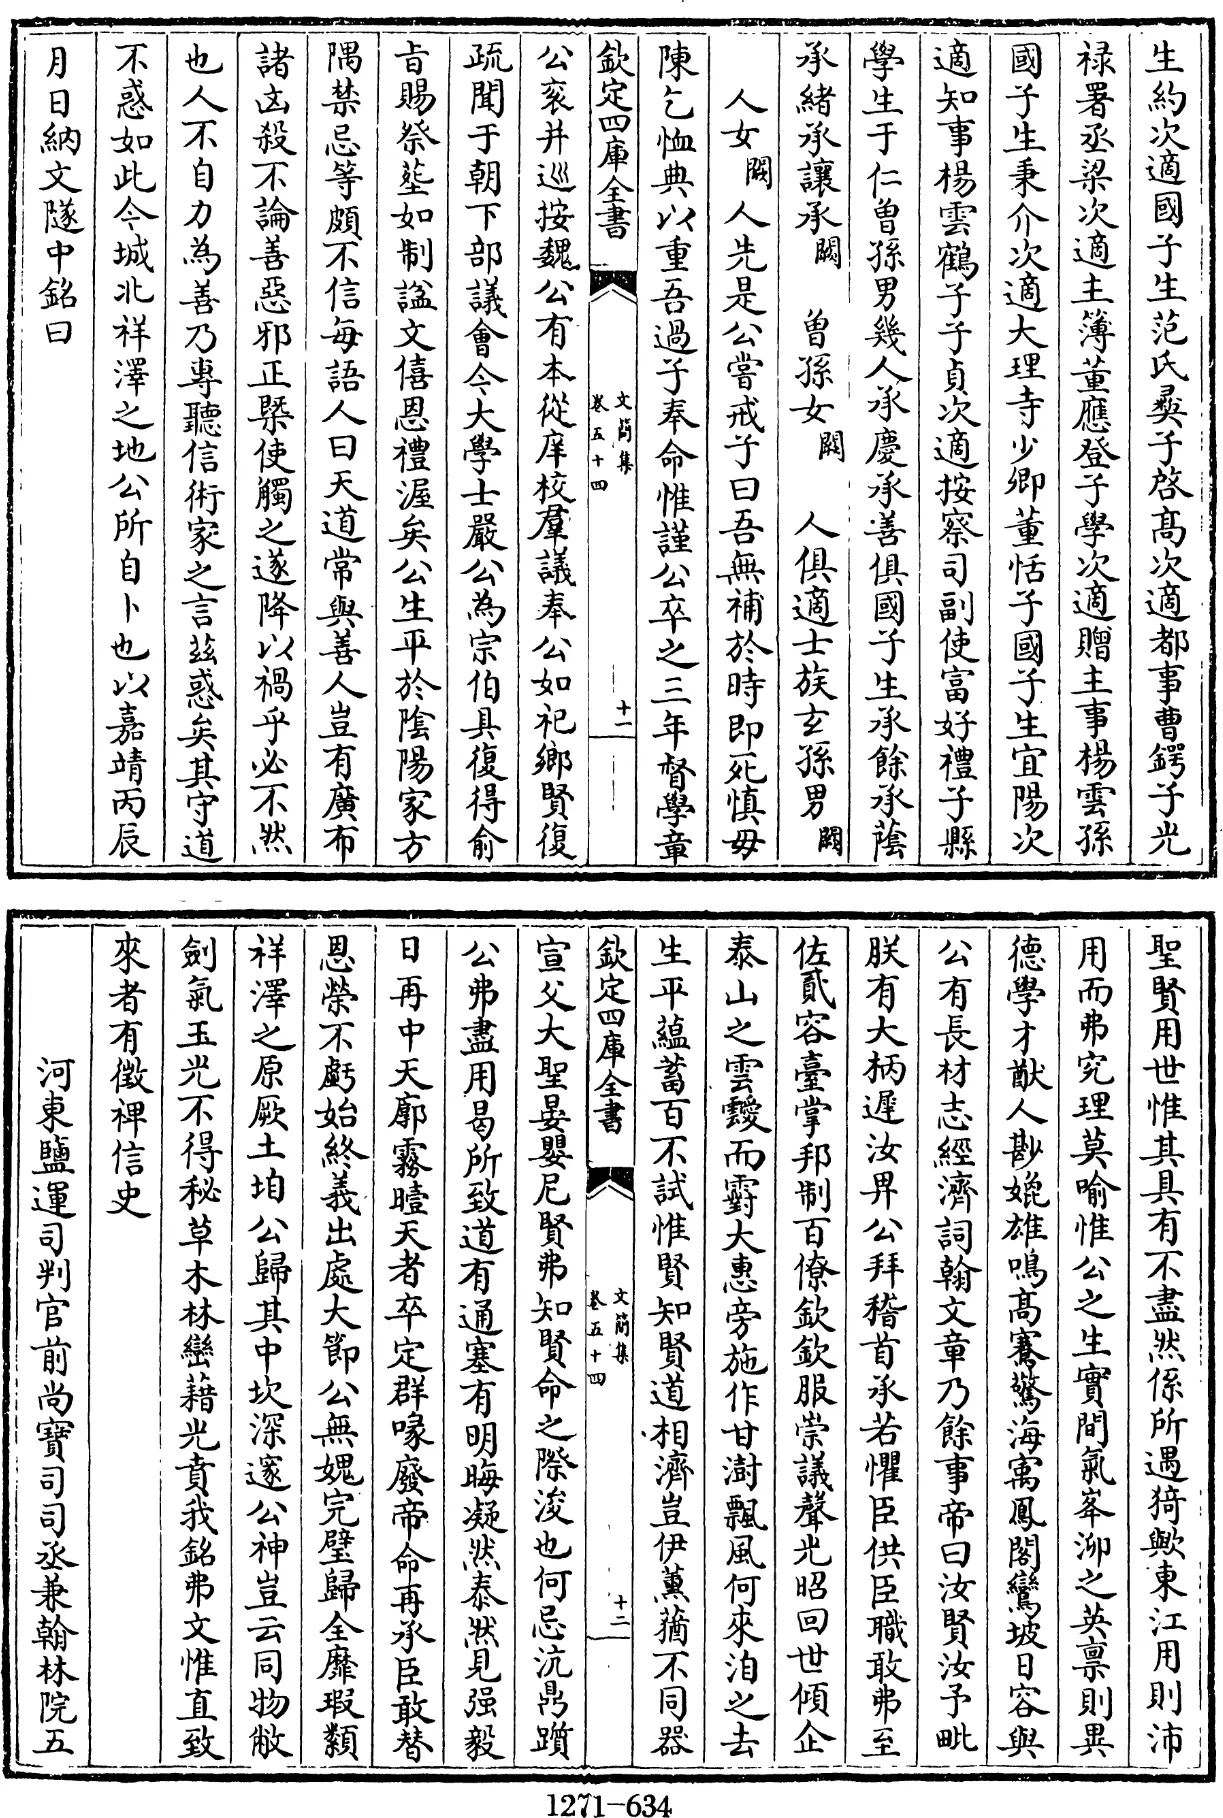 生約次適國子生范氏彛子啓髙次適都事曹鍔子光
禄署丞梁次適主簿董應登子學次適贈主事楊雲孫
國子生秉介次適大理寺少卿董恬子國子生宜陽次
適知事楊雲鶴子子貞次適按察司副使富好禮子縣
學生于仁曽孫男幾人承慶承善俱國子生承餘承蔭
承緒承讓承闕 曽孫女闕 人俱適士族玄孫男闕
人女闕 人先是公嘗戒子曰吾無補於時即死慎毋
陳乞恤典以重吾過子奉命惟謹公卒之三年督學章
欽定四庫全書
文簡集
卷五十四
十一
公衮并巡按魏公有本從庠校羣議奉公如祀鄉賢復
疏聞于朝下部議會今大學士嚴公為宗伯具復得俞
㫖賜祭塟如制諡文僖恩禮渥矣公生平於隂陽家方
隅禁忌等頗不信每語人曰天道常與善人豈有廣布
諸凶殺不論善惡邪正槩使觸之遂降以禍乎必不然
也人不自力為善乃專聽信術家之言兹惑矣其守道
不惑如此今城北祥澤之地公所自卜也以嘉靖丙辰
月日納文隧中銘曰
聖賢用世惟其具有不盡然係所遇猗歟東江用則沛
用而弗究理莫喻惟公之生實間氣峯泖之英禀則異
德學才猷人尠媲雄鳴髙騫驚海㝢鳳閣鸞坡日容與
公有長材志經濟詞翰文章乃餘事帝曰汝賢汝予毗
朕有大柄遲汝畀公拜稽首承若懼臣供臣職敢弗至
佐貳容臺掌邦制百僚欽欽服崇議聲光昭回世傾企
泰山之雲靉而霨大惠旁施作甘澍飄風何來洎之去
生平藴蓄百不試惟賢知賢道相濟豈伊薰蕕不同器
欽定四庫全書
文簡集
卷五十四
十二
宣父大聖晏嬰尼賢弗知賢命之際浚也何忌沆鼎躓
公弗盡用曷所致道有通塞有明晦凝然泰然見强毅
日再中天廓霧曀天者卒定群喙廢帝命再承臣敢替
恩榮不虧始終義出處大節公無媿完璧歸全靡瑕纇
祥澤之原厥土㘬公歸其中坎深邃公神豈云同物敝
劍氣玉光不得秘草木林巒藉光賁我銘弗文惟直致
來者有徵裨信史
河東鹽運司判官前尚寶司司丞兼翰林院五
1271-634